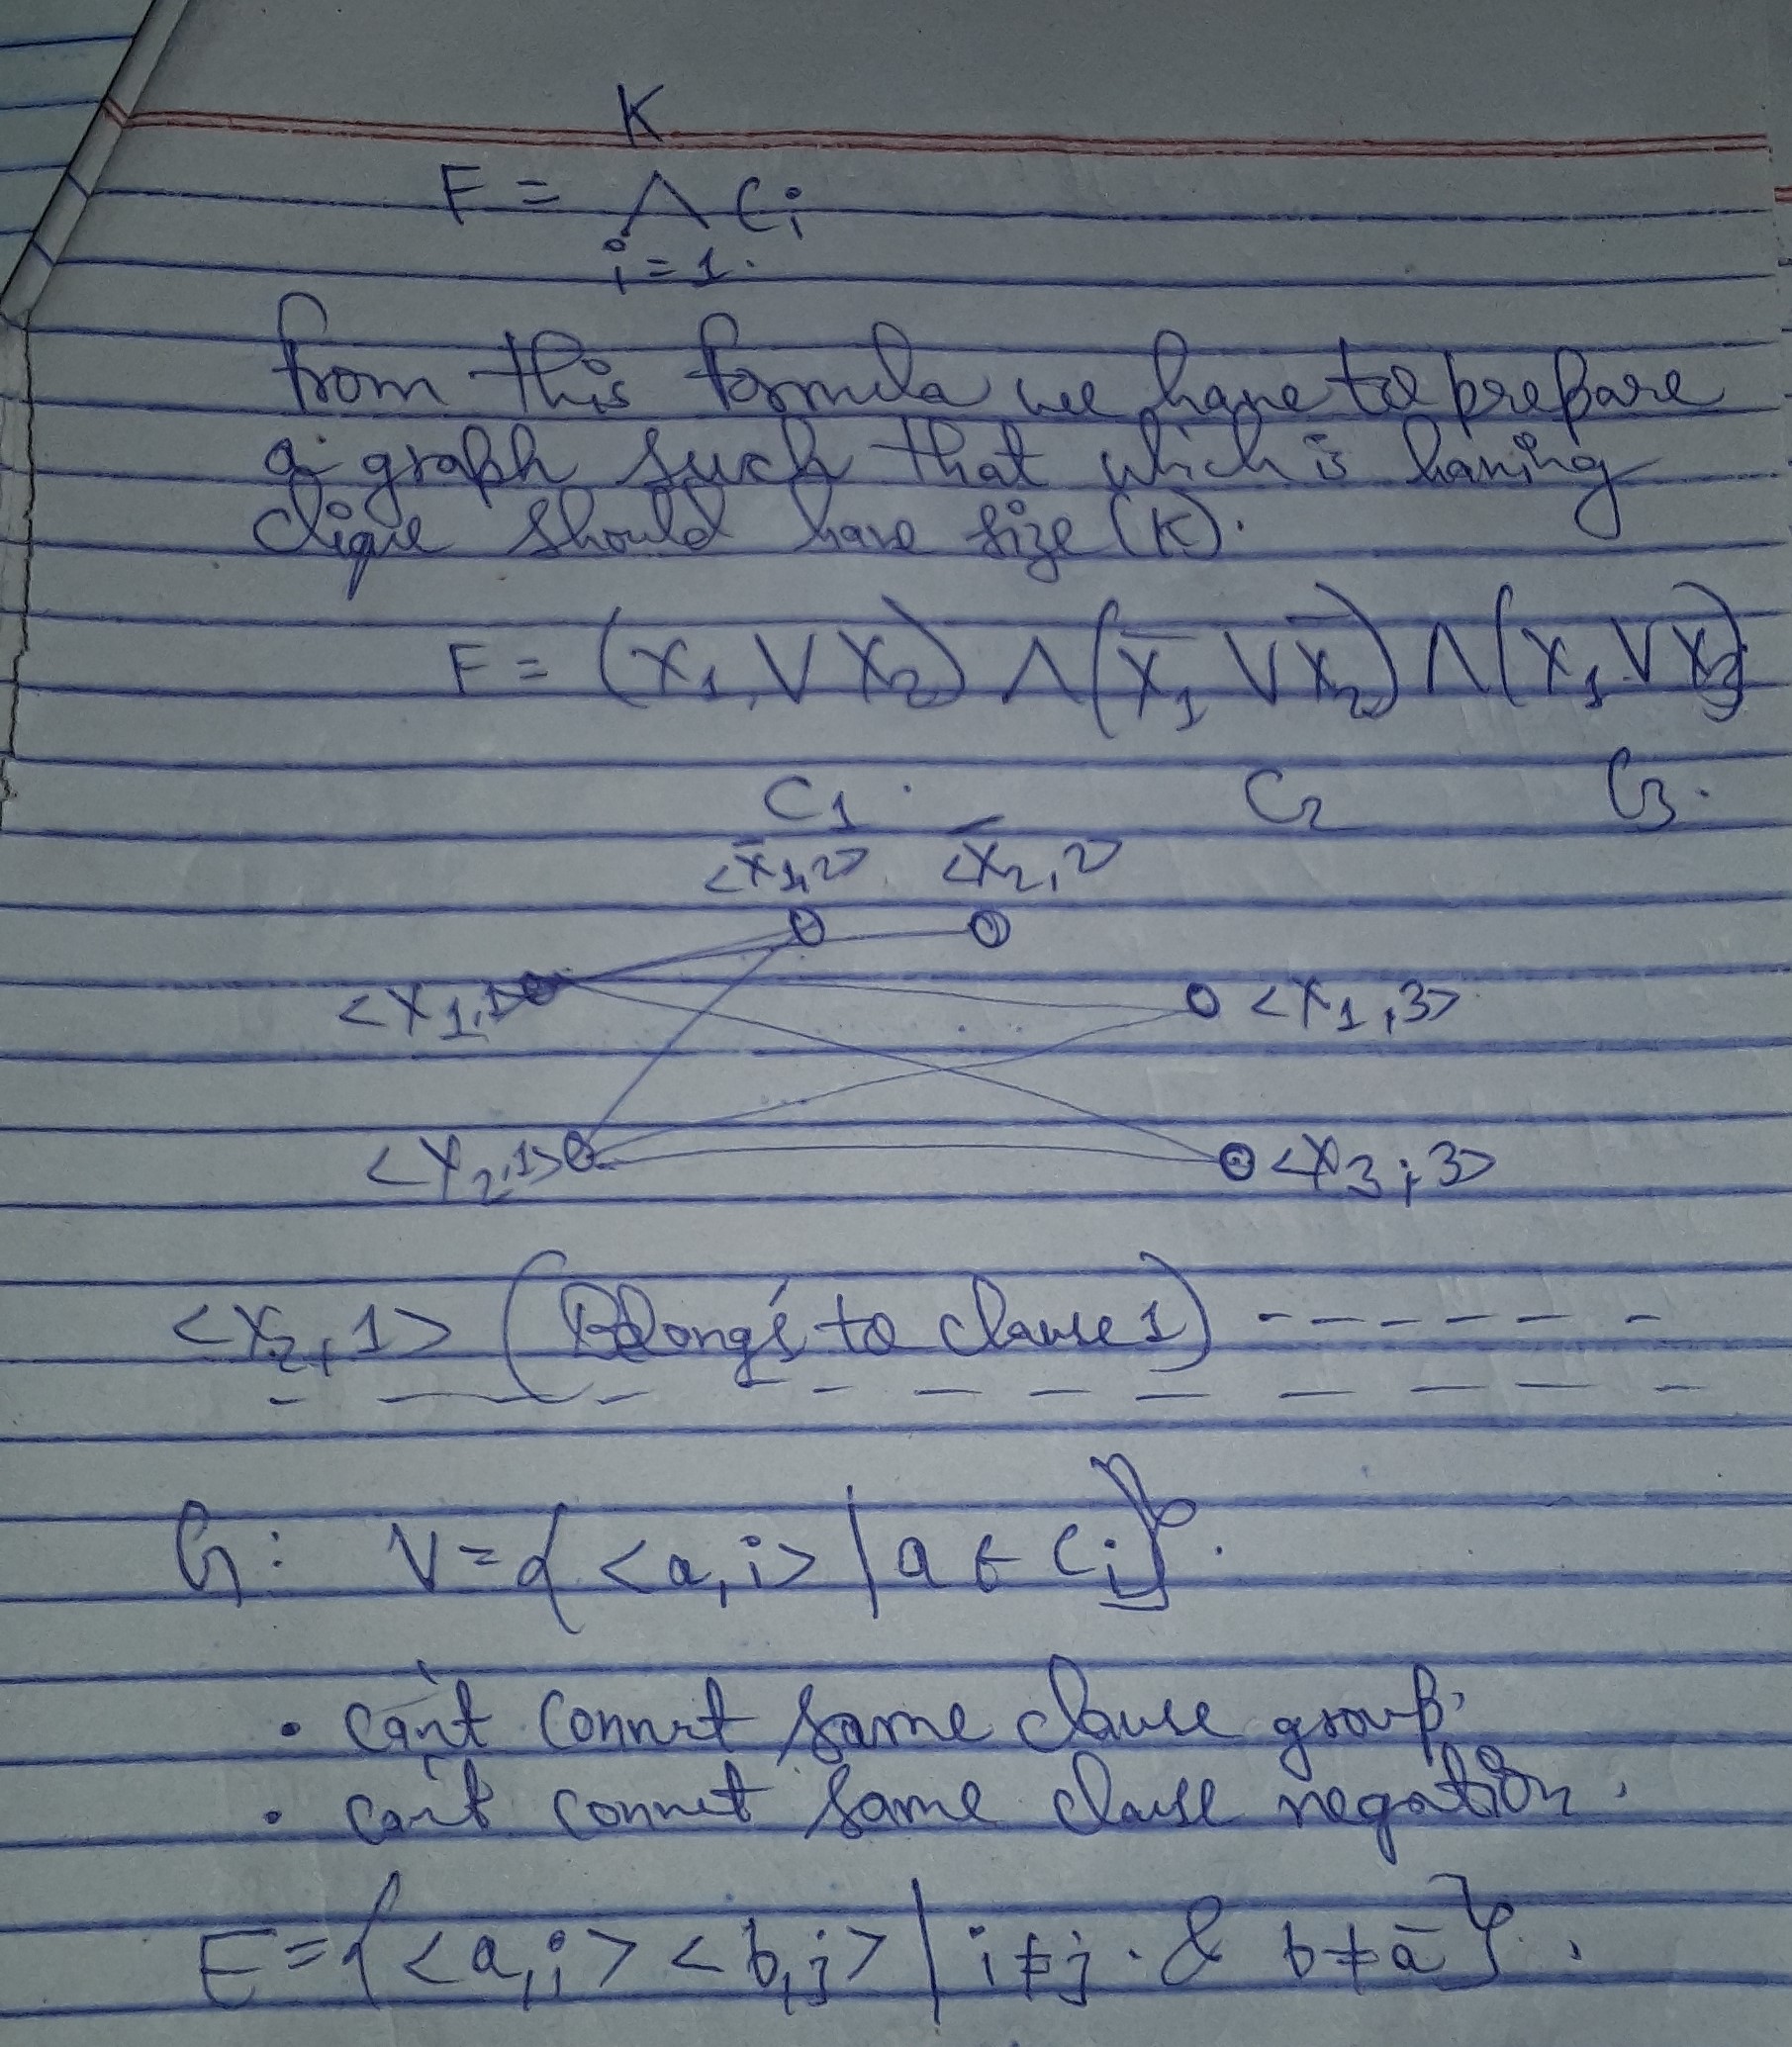 K
F = ∧ Ci
i=1.
from this formula we have to prepare
a graph such that which is having
clique should have size (K).
F = (X₁ V X₂) ∧ (X̄₁ V X̄₂) ∧ (X₁ V X₃)
C₁ C₂ C₃.
<X̄₁,2> <X̄₂,2>
<X₁,1> <X₁,3>
<X₂,1> <X₃,3>
<X₂,1> (Belongs to clause 1) - - - - - -
- - - - - - - - - - -
G: V = {<a,i> | a ∈ Ci}.
• can't connect same clause group.
• can't connect same clause negation.
E = {<a,i> <b,j> | i≠j. & b≠ā}.